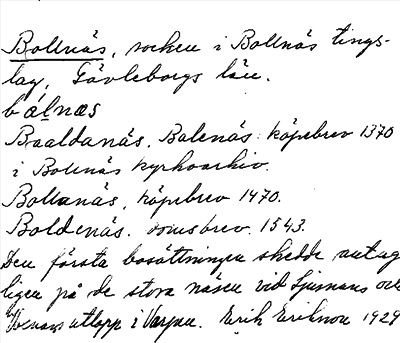 Bollnäs, socken i Bollnäs tings-
lag, Gävleborgs län.
bálnæs
Baaldanäs, Balenäs: köpebrev 1370
i Bollnäs kyrkoarkiv.
Bollanäs, köpebrev 1470.
Boldenäs. domsbrev. 1543.
Den första bosättningen skedde antag
ligen på de stora näsen vid Ljusnans och
Voxnans utlopp i Varpen. Erik Erikson 1929